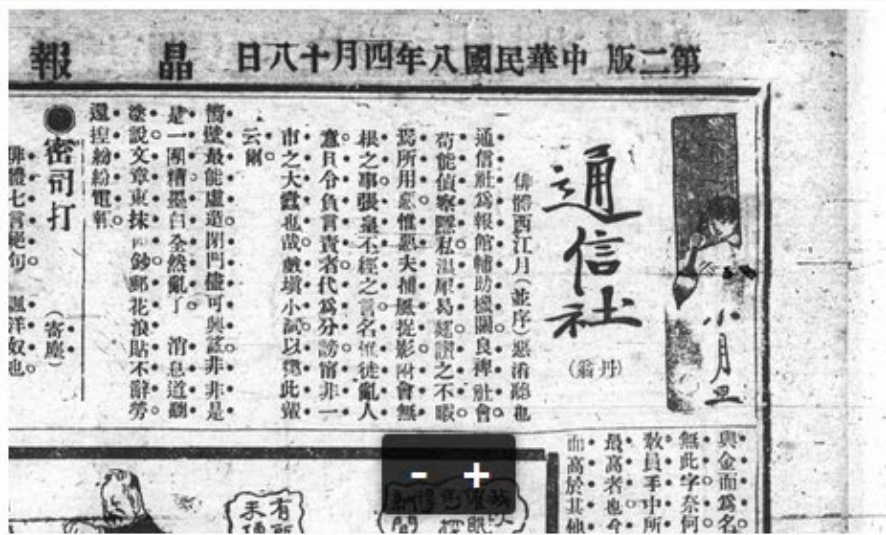 第二版 中華民國八年四月十八日 晶報
小月旦
通信社
(丹翁)
俳體西江月(並序)惡淆聽也
通信社爲報館輔助機關良裨社會
苟能偵察隱私溫犀曷建讚之不暇
焉所用惡惟惡夫捕風捉影附會無
根之事張皇不經之言名惟徒亂人
意且令負言責者代爲分謗甯非一
市之大蠹也哉戲塡小詞以懲此輩
云爾
嚮壁最能虛造閉門儘可興謠非非是
是一團糟黑白全然亂了 消息道聽
塗說文章東抹西鈔郵花浪貼不辭勞
還捏紛紛電報
密司打
(寄塵)
俳體七言絕句 諷洋奴也
與金面爲名
無此字奈何
敎員手中所
最高者也今
而高於其他